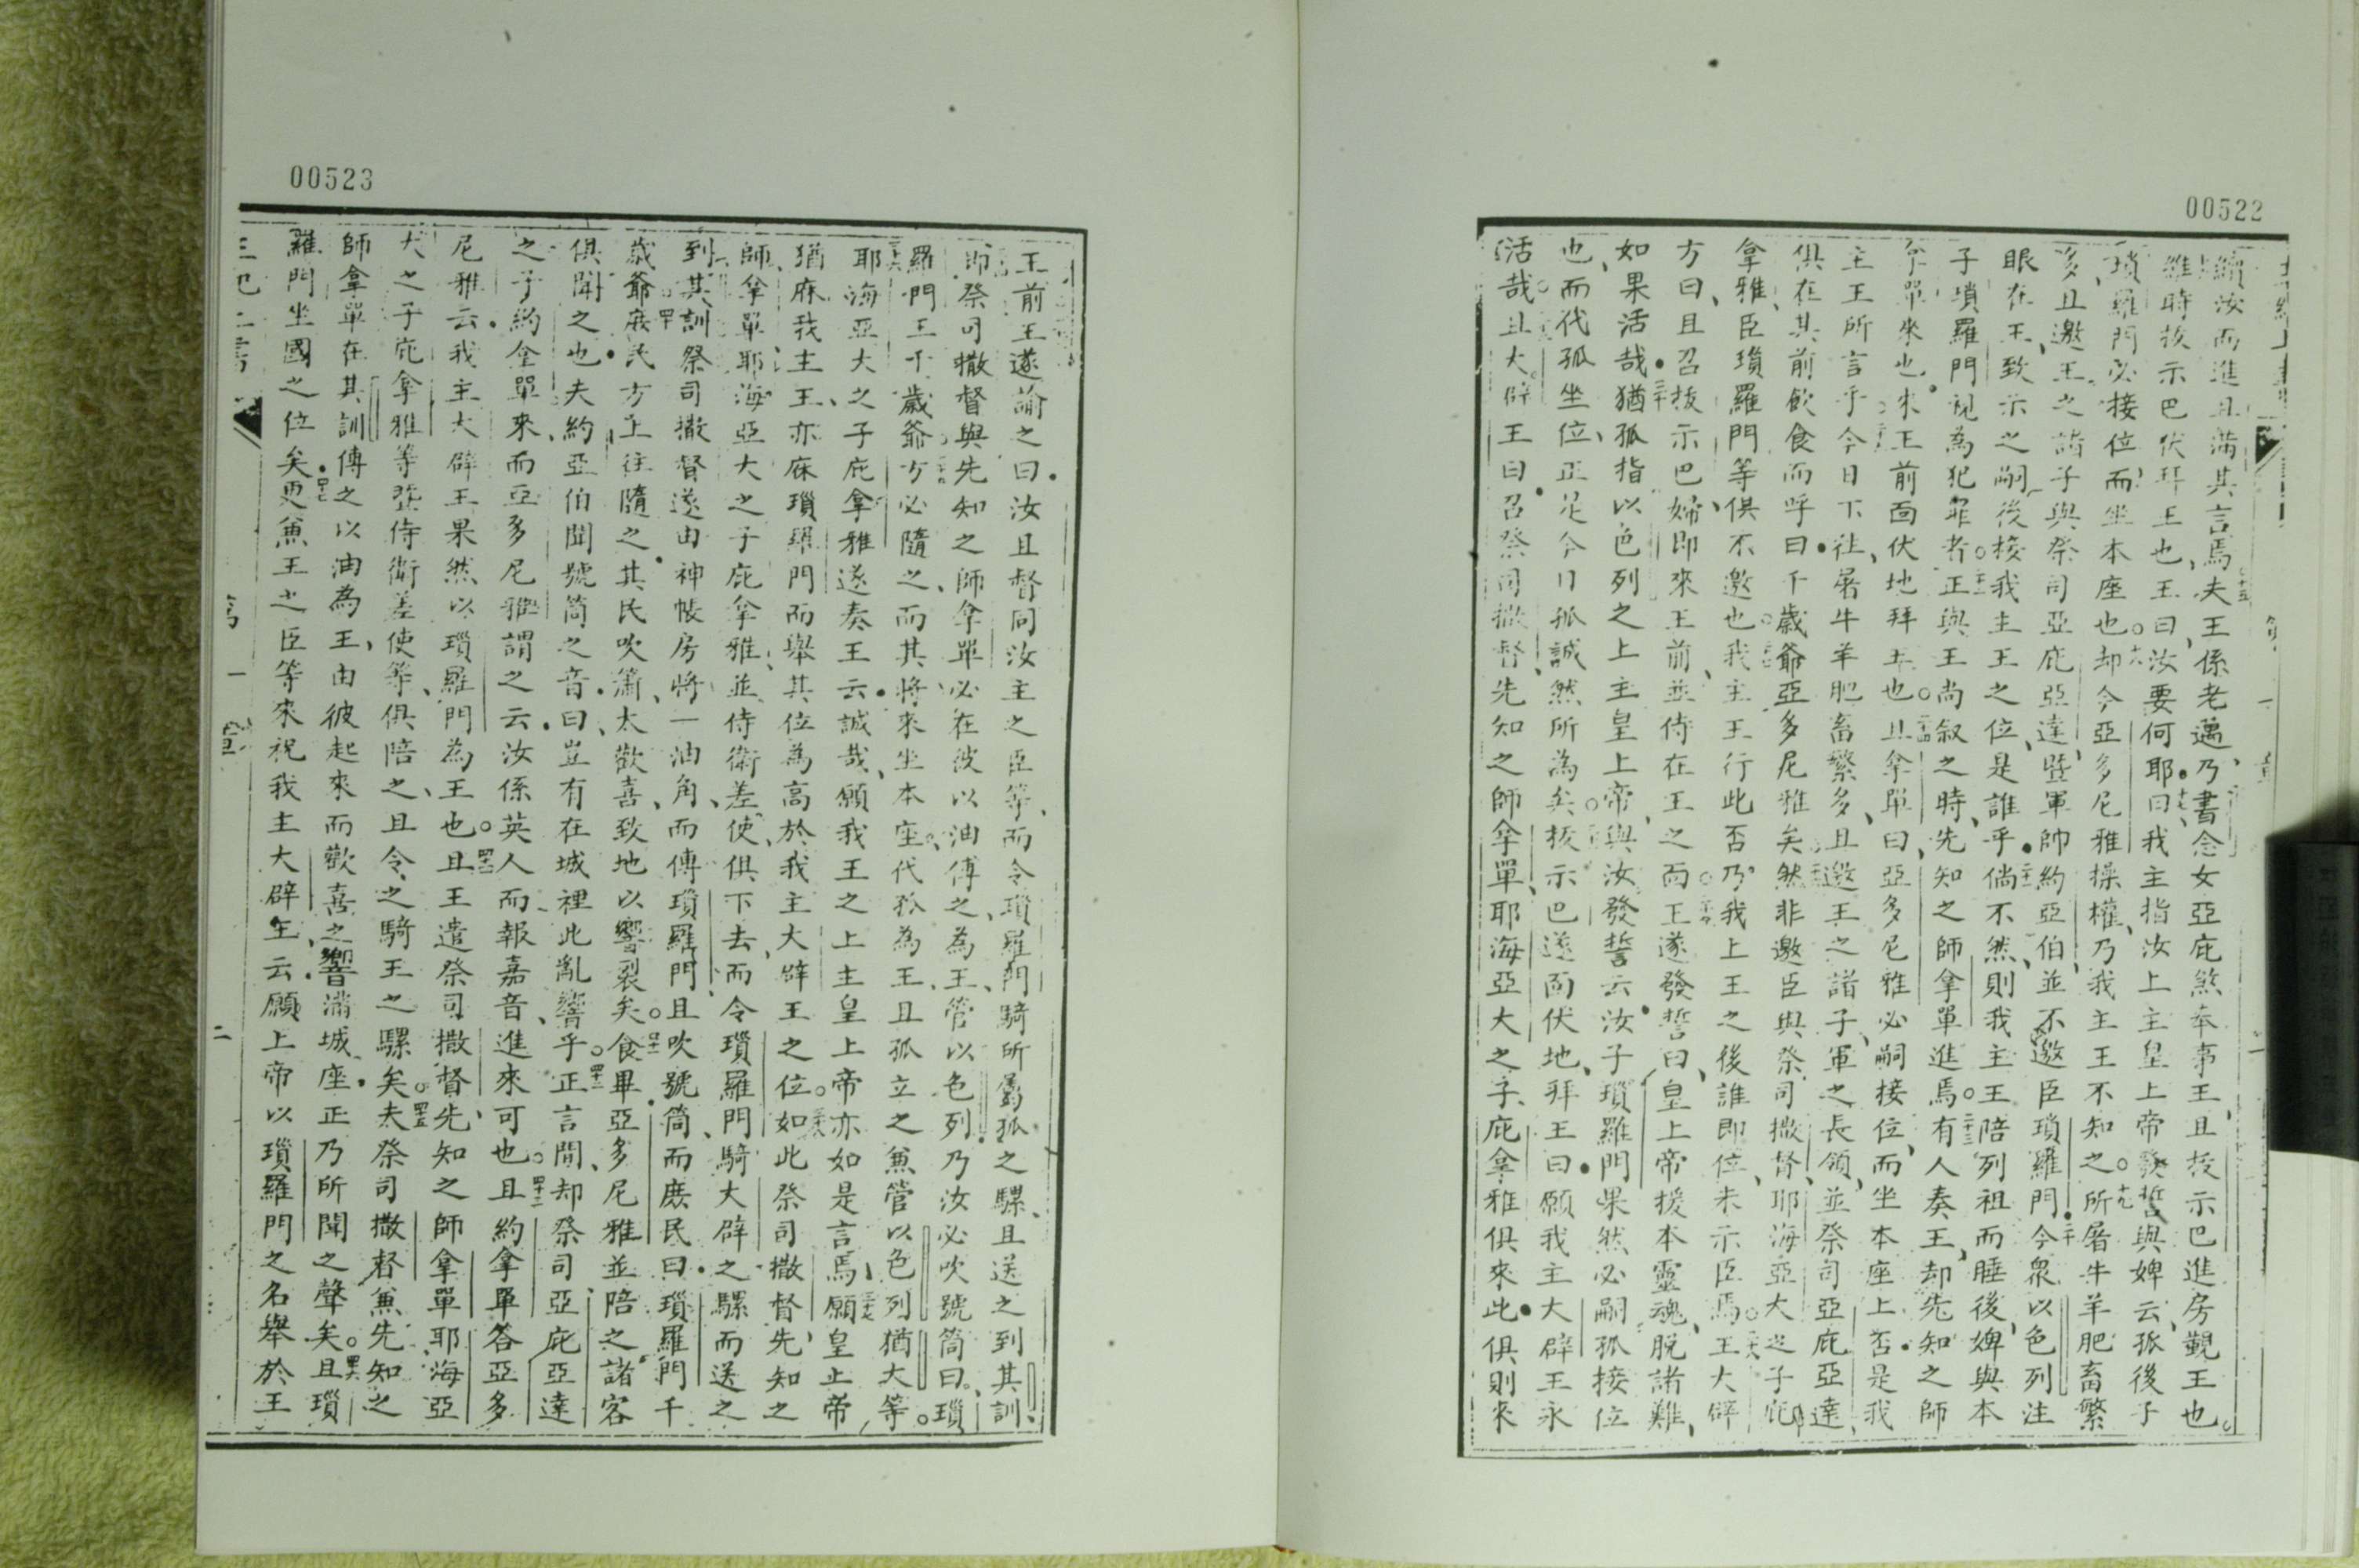 00522
續汝而進且滿其言焉夫王係老邁乃書念女亞庇煞奉事王且拔示巴進房覲王也
維時拔示巴伏拜王也王曰汝要何耶曰我主指汝上主皇上帝發誓與婢云孤後子
瑣羅門必接位而坐本座也却今亞多尼雅操權乃我主王不知之所屠牛羊肥畜繁
多且邀王之諸子與祭司亞庇亞達暨軍帥約亞伯並不邀臣瑣羅門今衆以色列注
眼在王致示之嗣後接我主王之位是誰乎倘不然則我主王陪列祖而睡後婢與本
子瑣羅門視為犯罪者正與王尚敘之時先知之師拿單進焉有人奏王却先知之師
拿單來也來王前面伏地拜王也且拿單曰亞多尼雅必嗣接位而坐本座上否是我
主王所言乎今日下往屠牛羊肥畜繁多且邀王之諸子軍之長領並祭司亞庇亞達
俱在其前飲食而呼曰千歲爺亞多尼雅矣然非邀臣與祭司撒督耶海亞大之子庇
拿雅臣瑣羅門等俱不邀也我主王行此否乃我上王之後誰即位未示臣焉王大辟
方曰且召拔示巴婦即來王前並侍在王之面王遂發誓曰皇上帝援本靈魂脫諸難
如果活哉猶孤指以色列之上主皇上帝與汝發誓云汝子瑣羅門果然必嗣孤接位
也而代孤坐位正是今日孤誠然所為矣拔示巴遂面伏地拜王曰願我主大辟王永
活哉且大辟王曰召祭司撒督先知之師拿單耶海亞大之子庇拿雅俱來此俱則來
00523
王前王遂諭之曰汝且督同汝主之臣等而令瑣羅門騎所屬孤之騾且送之到其訓
即祭司撒督與先知之師拿單必在彼以油傅之為王管以色列乃汝必吹號筒曰瑣
羅門王千歲爺方必隨之而其將來坐本座代孤為王且孤立之兼管以色列猶大等
耶海亞大之子庇拿雅遂奏王云誠哉願我王之上主皇上帝亦如是言焉願皇上帝
猶庥我主王亦庥瑣羅門而舉其位為高於我主大辟王之位如此祭司撒督先知之
師拿單耶海亞大之子庇拿雅並侍衛差使俱下去而令瑣羅門騎大辟之騾而送之
到其訓祭司撒督遂由神帳房將一油角而傅瑣羅門且吹號筒而庶民曰瑣羅門千
歲爺庶民方上往隨之其民吹簫太歡喜致地以響裂矣食畢亞多尼雅並陪之諸客
俱聞之也夫約亞伯聞號筒之音曰豈有在城裡此亂響乎正言間却祭司亞庇亞達
之子約拿單來而亞多尼雅謂之云汝係英人而報嘉音進來可也且約拿單答亞多
尼雅云我主大辟王果然以瑣羅門為王也且王遣祭司撒督先知之師拿單耶海亞
大之子庇拿雅等並侍衛差使等俱陪之且令之騎王之騾矣夫祭司撒督兼先知之
師拿單在其訓傅之以油為王由彼起來而歡喜之響滿城座正乃所聞之聲矣且瑣
羅門坐國之位矣更兼王之臣等來祝我主大辟王云願上帝以瑣羅門之名舉於王